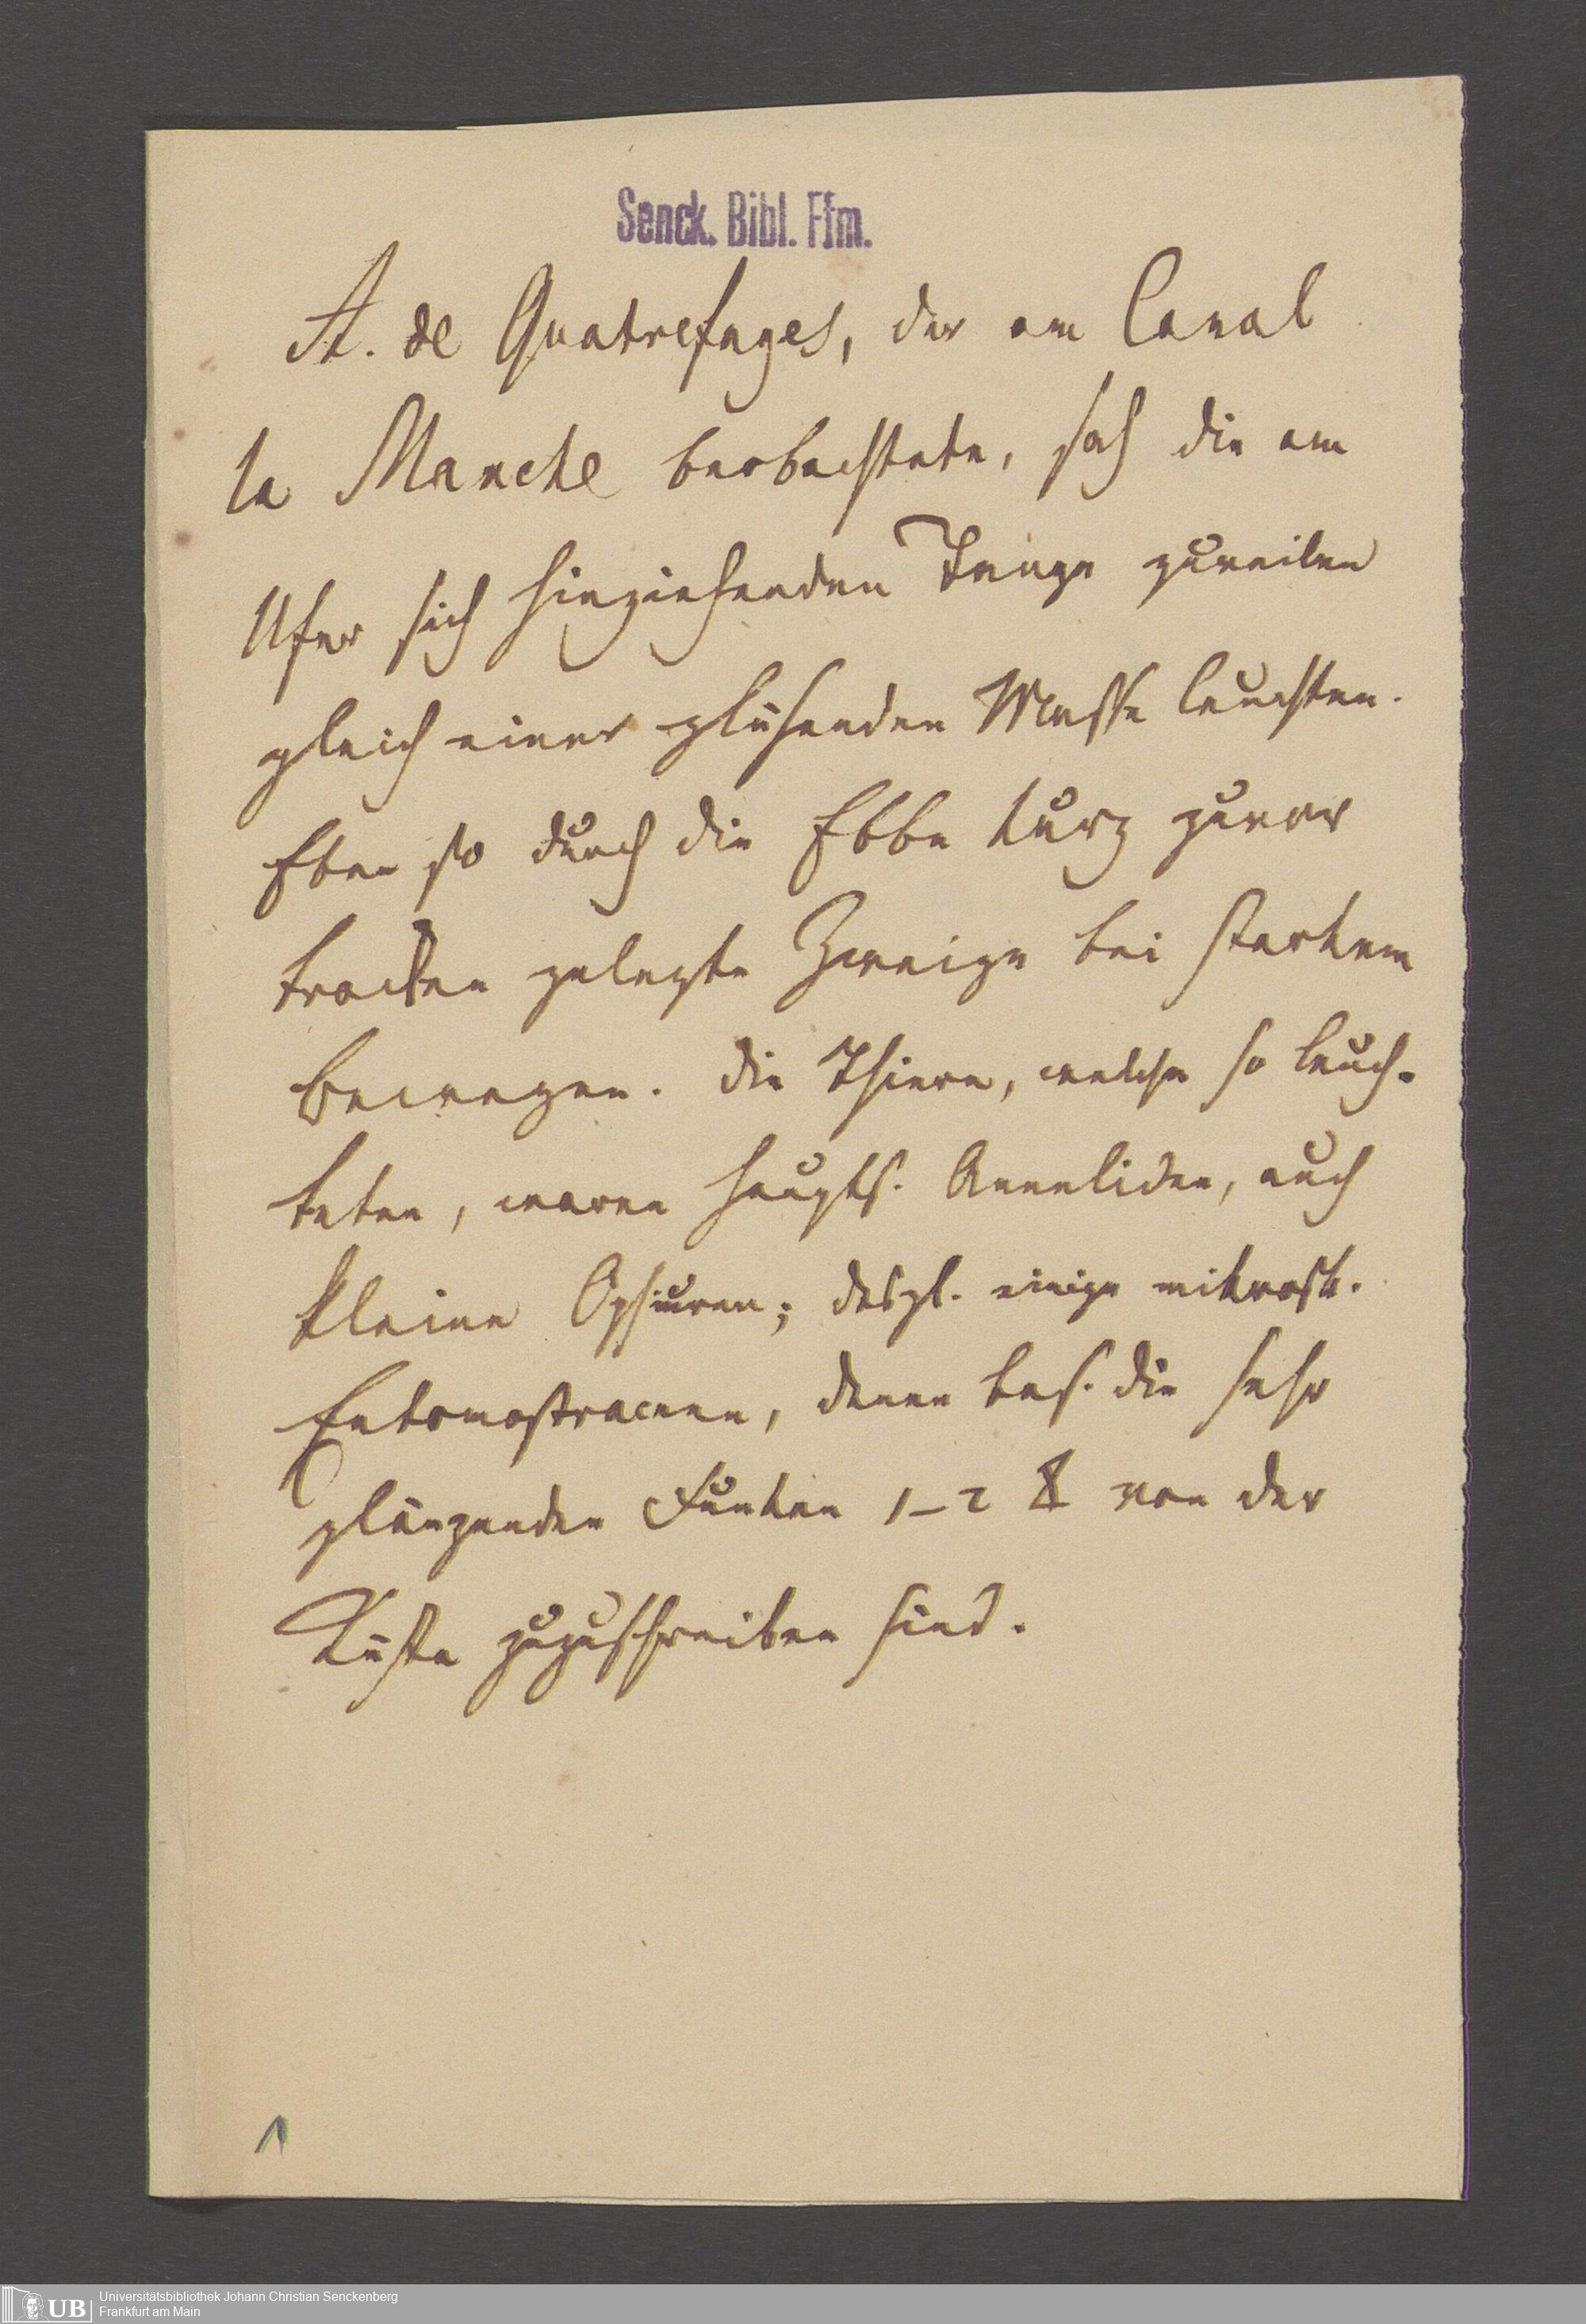 Senck. Bibl. Ffm.
A. de Quatrefages, der am Canal
la Manche beobachtete, sah die am
Ufer sich hinziehenden Tange zuweilen
gleich einer glühenden Masse leuchten.
Eben so durch die Ebbe kurz zuvor
trocken gelegte Zweige bei starkem
Bewegen. Die Thiere, welche so leuch-
teten, waren haupts. Anneliden, auch
kleine Ophiuren; desgl. einige mikrosk.
Entomostraceen, denen bes. die sehr
glänzenden Funken 1–2 von der
Küste zuzuschreiben sind.
1
UB
Universitätsbibliothek Johann Christian Senckenberg
Frankfurt am Main